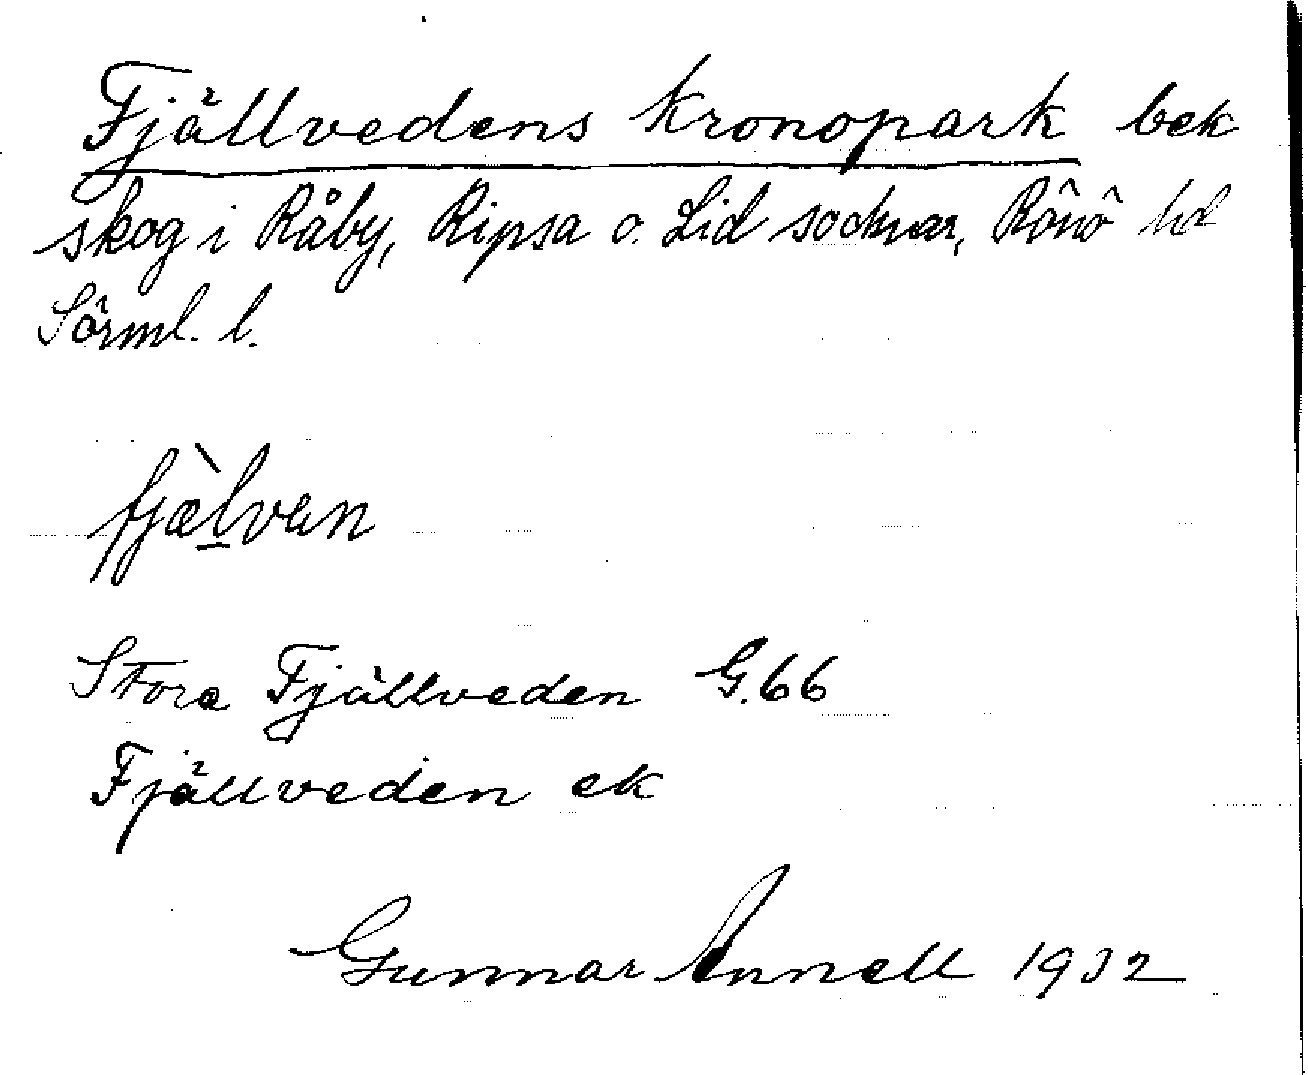 Fjällvedens kronopark bek
skog i Råby, Ripsa o. Lid socknar, Rönö hd
Sörml. l.
fjæ̀l̲van
Stora Fjällveden G.66
Fjällveden ek
Gunnar Annell 1932